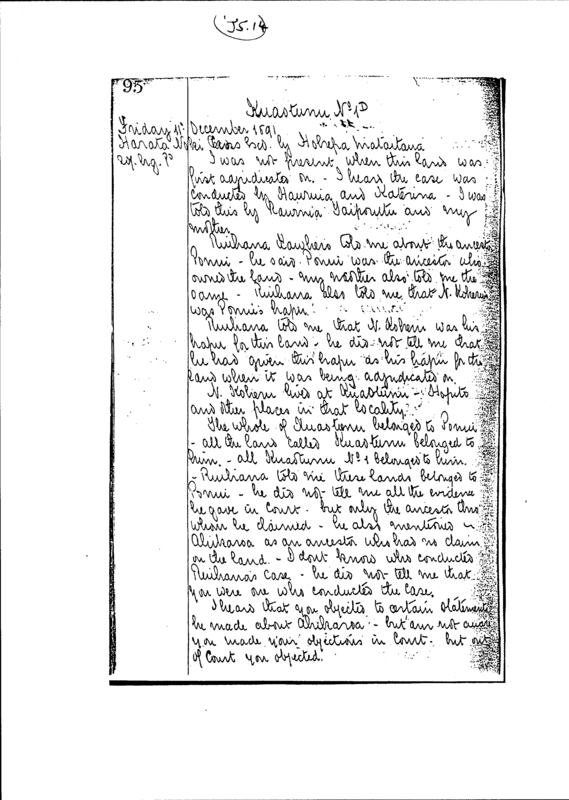 J5.14
95
Kuaotunu No 1D
Friday 11 December 1891
Harata Noki Cross Exd. by Hohepa Mataitaua
I was not present when this land was
first adjudicated on. - I heard the case was
conducted by Haurua and Katerina - I was
told this by Taipoutu and my
mother.
Ruihana told me about the ancestor
Ponui - he said Ponui was the ancestor who
owned the land - my mother also told me the
same - Ruihana also told me that N. Koheru
was Ponui's hapu.
Ruihana told me that N. Koheru was his
hapu for this land - he did not tell me that
he had given this hapu as his hapu for the
land when it was being adjudicated on.
N. Koheru lived at Kuaotunu -
and other places in that locality.
The whole of Kuaotunu belonged to Ponui
- all the land called Kuaotunu belonged to
him. - all Kuaotunu No 1 belonged to him.
- Ruihana told me these lands belonged to
Ponui - he did not tell me all the evidence
he gave in Court. but only the ancestor thro
whom he claimed - he also mentioned
Ahikaroa as an ancestor who had no claim
on the land. - I dont know who conducted
Ruihana's case - he did not tell me that
you were one who conducted the case.
I heard that you objected to certain statements
he made about Ahikaroa - but am not aware
you made your objections in Court. but out
of Court you objected.